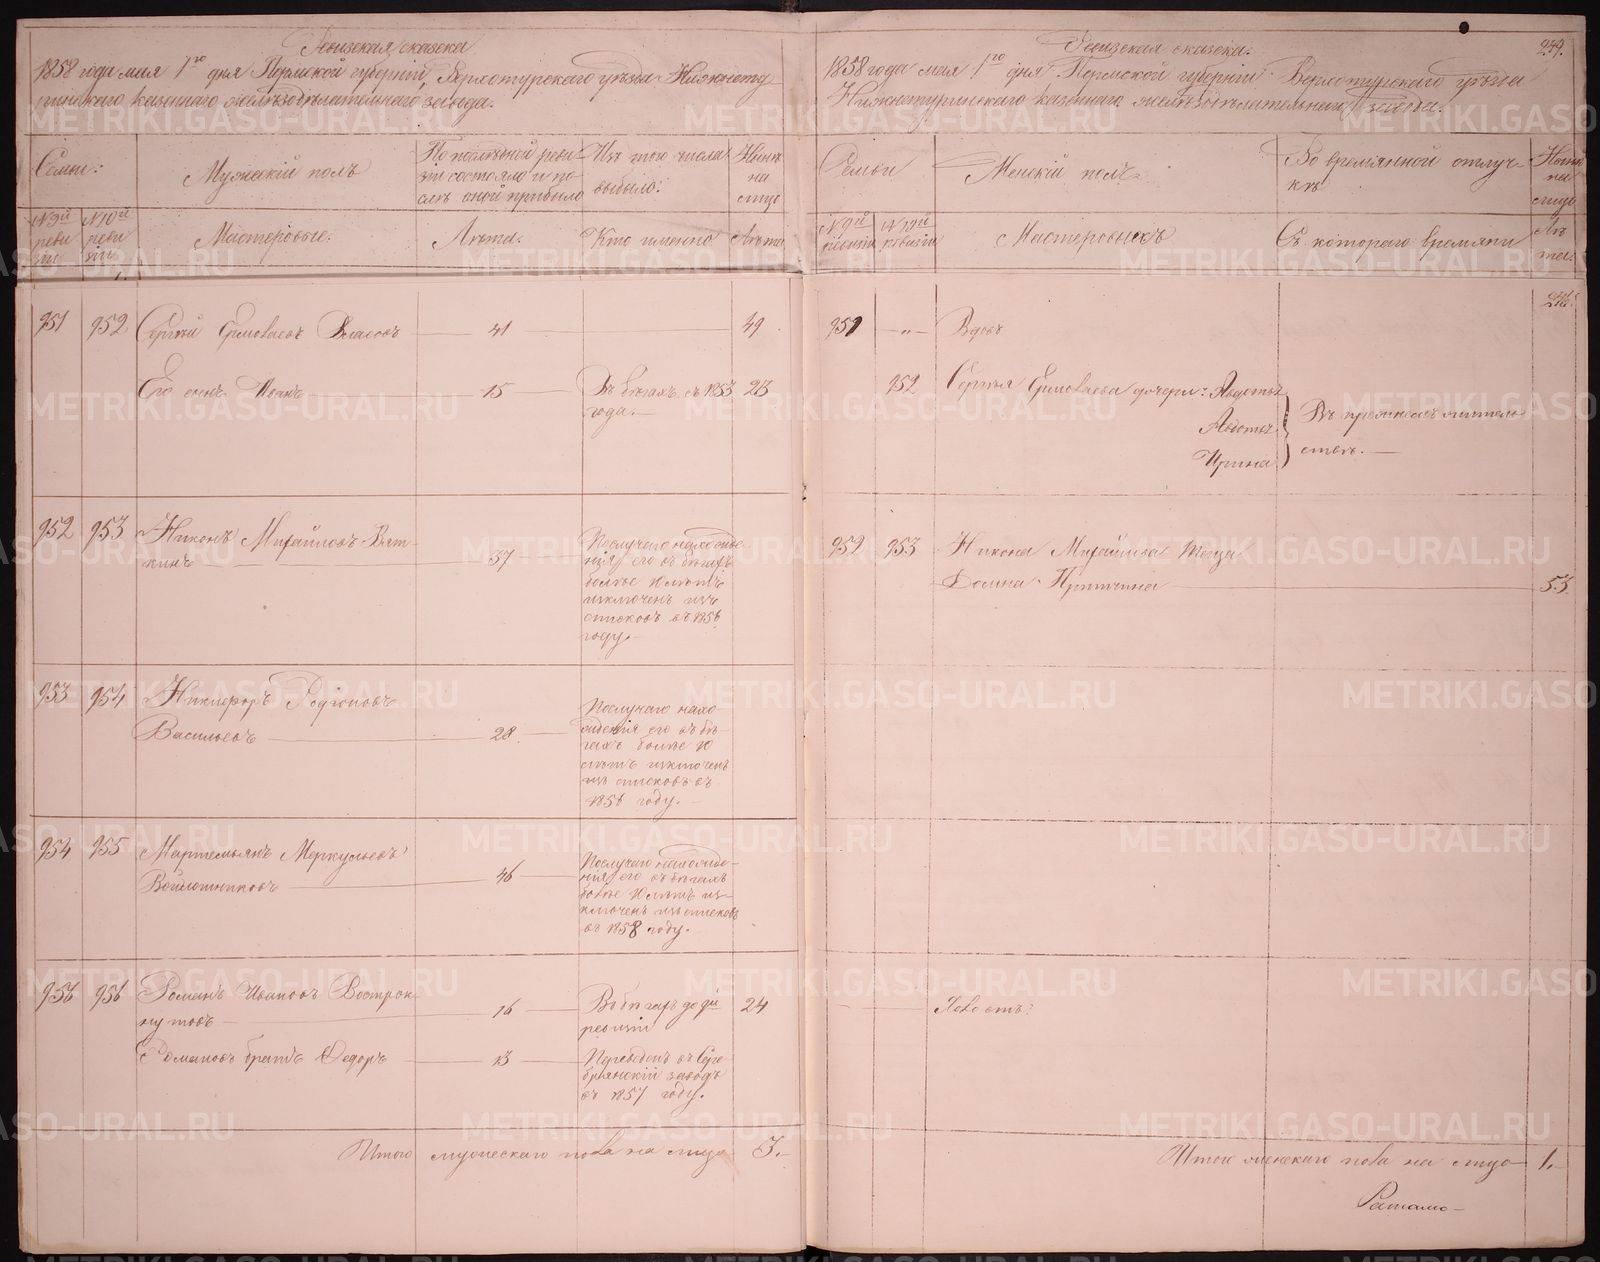 Ревизская сказка
1858 года мая 1го дня Пермской губернии, Верхотурского уезда Нижнету
ринского казенного железоделательного завода.
Семьи:
Мужеский полъ
По последней реви-
зiи состояло и по-
сле оной прибыло
Изъ того числа
выбыло:
Ныне
на
лицо
№ 9й
реви
зiи
№ 10й
реви
зiи
Мастеровые:
Лѣта.
Кто именно
Лѣта
951 952 Сергей Ермолаевъ Власовъ 41 49
Его сынъ Иванъ 15 Въ бѣгахъ съ 1853 23
года.
952 953 Никонъ Михайловъ Вят-
кинъ 37
Послучаю нахожде-
нiя его въ бѣгахъ
более 10 лѣтъ
исключенъ изъ
списковъ въ 1856
году.
953 954 Никифоръ Родiоновъ
Васильевъ 28
Послучаю нахо
жденiя его въ бѣ-
гахъ более 10
лѣтъ исключенъ
изъ списковъ въ
1856 году.
954 955 Мартемьянъ Меркульевъ
Войлошниковъ 46
Послучаю нахожде-
нiя его въ бѣгахъ
более 10 лѣтъ ис-
ключенъ изъ списковъ
въ 1858 году.
956 956 Романъ Ивановъ Вострок-
нутовъ 16
Въ бѣгахъ до 9й
ревизiи
24
Романовъ братъ Федоръ 13
Переведенъ въ Сере-
брянскiй заводъ
въ 1857 году.
Итого мужескаго пола на лицо 3.
Ревизская сказка.
249.
1858 года мая 1го дня Пермской губернiи Верхотурского уѣзда
Нижнетуринского казенного железоделательного завода.
Семьи
Женскiй полъ
Во времянной отлуч-
кѣ
Ныне
на
лицо
№ 9й
ревизiи
№ 10й
ревизiи
Мастеровыхъ
Съ которого времяни
Лѣ
та.
951 " Вдовъ
952 Сергея Ермолаева дочери: Авдотья
Авдотья
Ирина
Въ прежнемъ жительс
твѣ.
952 953 Никона Михайлова жена
Домна Никитина 53
Холостъ
Итого женскаго пола на лицо 1.
METRIKI.GASO-URAL.RU